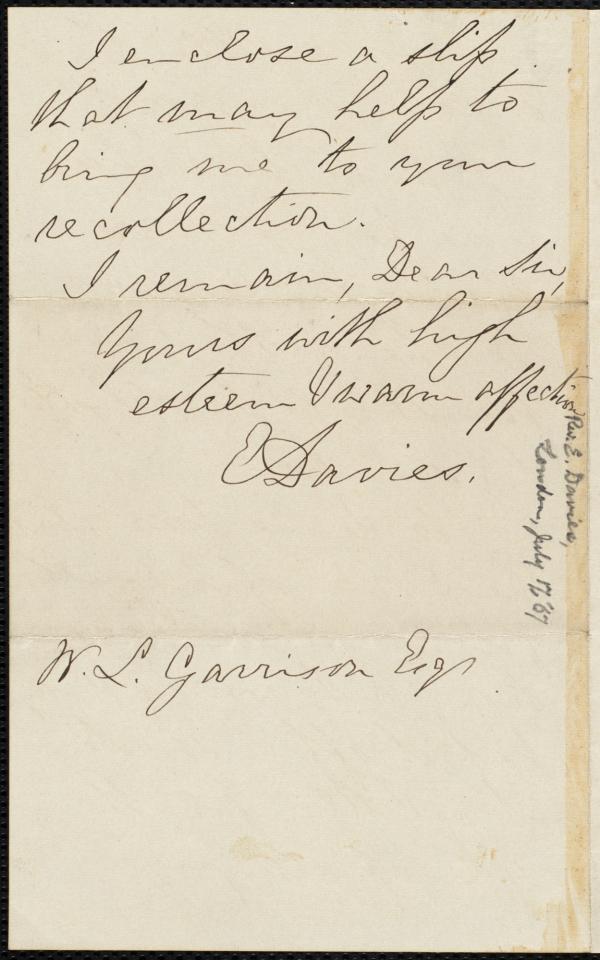 I enclose a slip
that may help to
bring me to your
recollection.
I remain, Dear Sir,
Yours with high
esteem & warm affection
E Davies.
W. L. Garrison Esqr
Rev. E. Davies,
London, July 17 '67